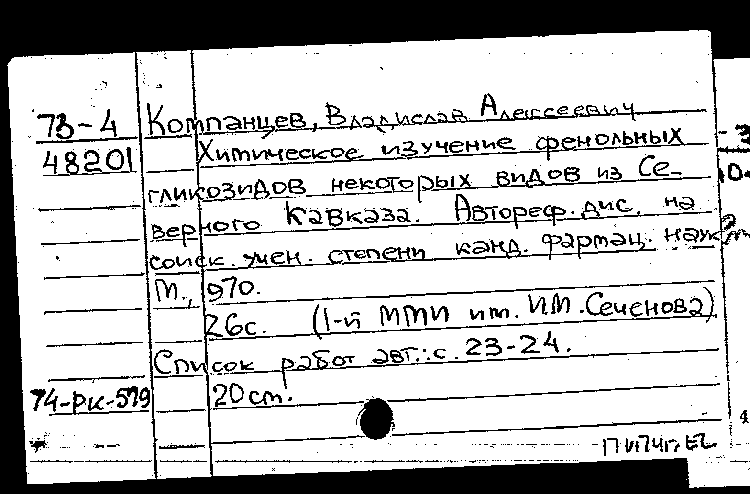 73-4 Компанцев, Владислав Алексеевич
48201 Химическое изучение фенольных
гликозидов некоторых видов из Се-
верного Кавказа. Автореф. дис. на
соиск. учен. степени канд. фармац. наук
М., 1970.
26с. (1-й ММИ им. И.М.Сеченова)
Список работ авт.: с. 23-24.
74-РК-519 20 см.